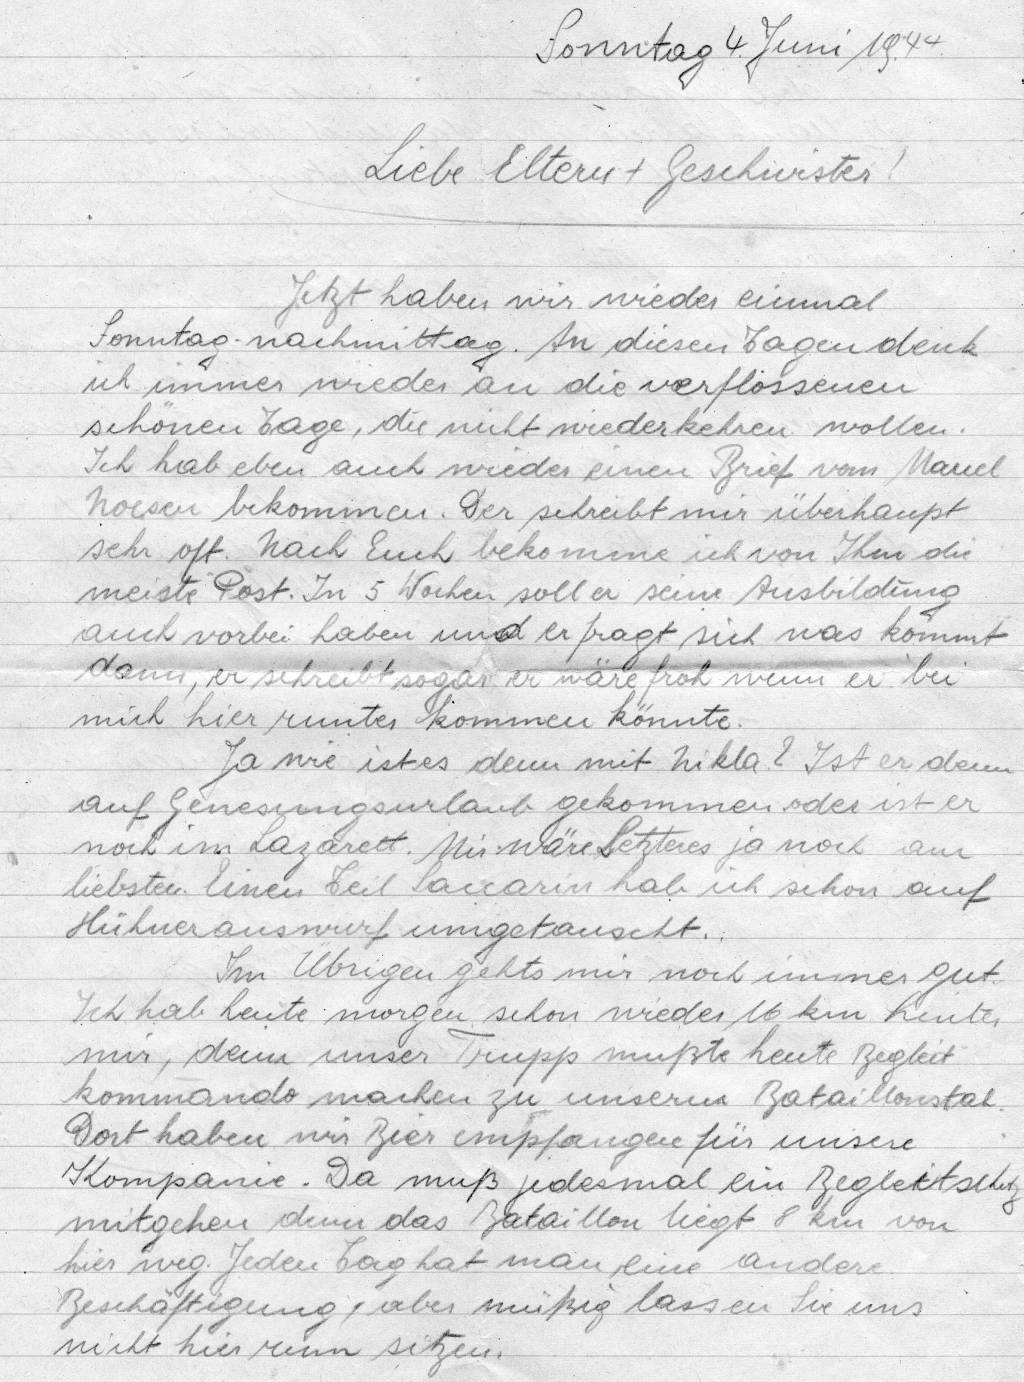 Sonntag 4. Juni 1944
Liebe Eltern + Geschwister!
Jetzt haben wir wieder einmal
Sonntag-nachmittag. An diesen Tagen denk
ich immer wieder an die verflossenen
schönen Tage, die nicht wiederkehren wollen.
Ich hab eben auch wieder einen Brief vom Marcel
Noesen bekommen. Der schreibt mir überhaupt
sehr oft. Nach Euch bekomme ich von Ihm die
meiste Post. In 5 Wochen soll er seine Ausbildung
auch vorbei haben und er fragt sich was kommt
dann, er schreibt sogar er wäre froh wenn er bei
mich hier runter kommen könnte.
Ja wie ist es denn mit Nikla? Ist er denn
auf Genesungsurlaub gekommen oder ist er
noch im Lazarett. Mir wäre Letzteres ja noch am
liebsten. Einen Teil Saccarin hab ich schon auf
Hühnerauswurf umgetauscht.
Im Übrigen gehts mir noch immer gut.
Ich hab heute morgen schon wieder 16 km hinter
mir, denn unser Trupp mußte heute Begleit
kommando machen zu unserm Bataillonstab.
Dort haben wir Bier empfangen für unsere
Kompanie. Da muß jedesmal ein Begleitschutz
mitgehen denn das Bataillon liegt 8 km von
hier weg. Jeden Tag hat man eine andere
Beschäftigung, aber müßig lassen Sie uns
nicht hier rum sitzen.